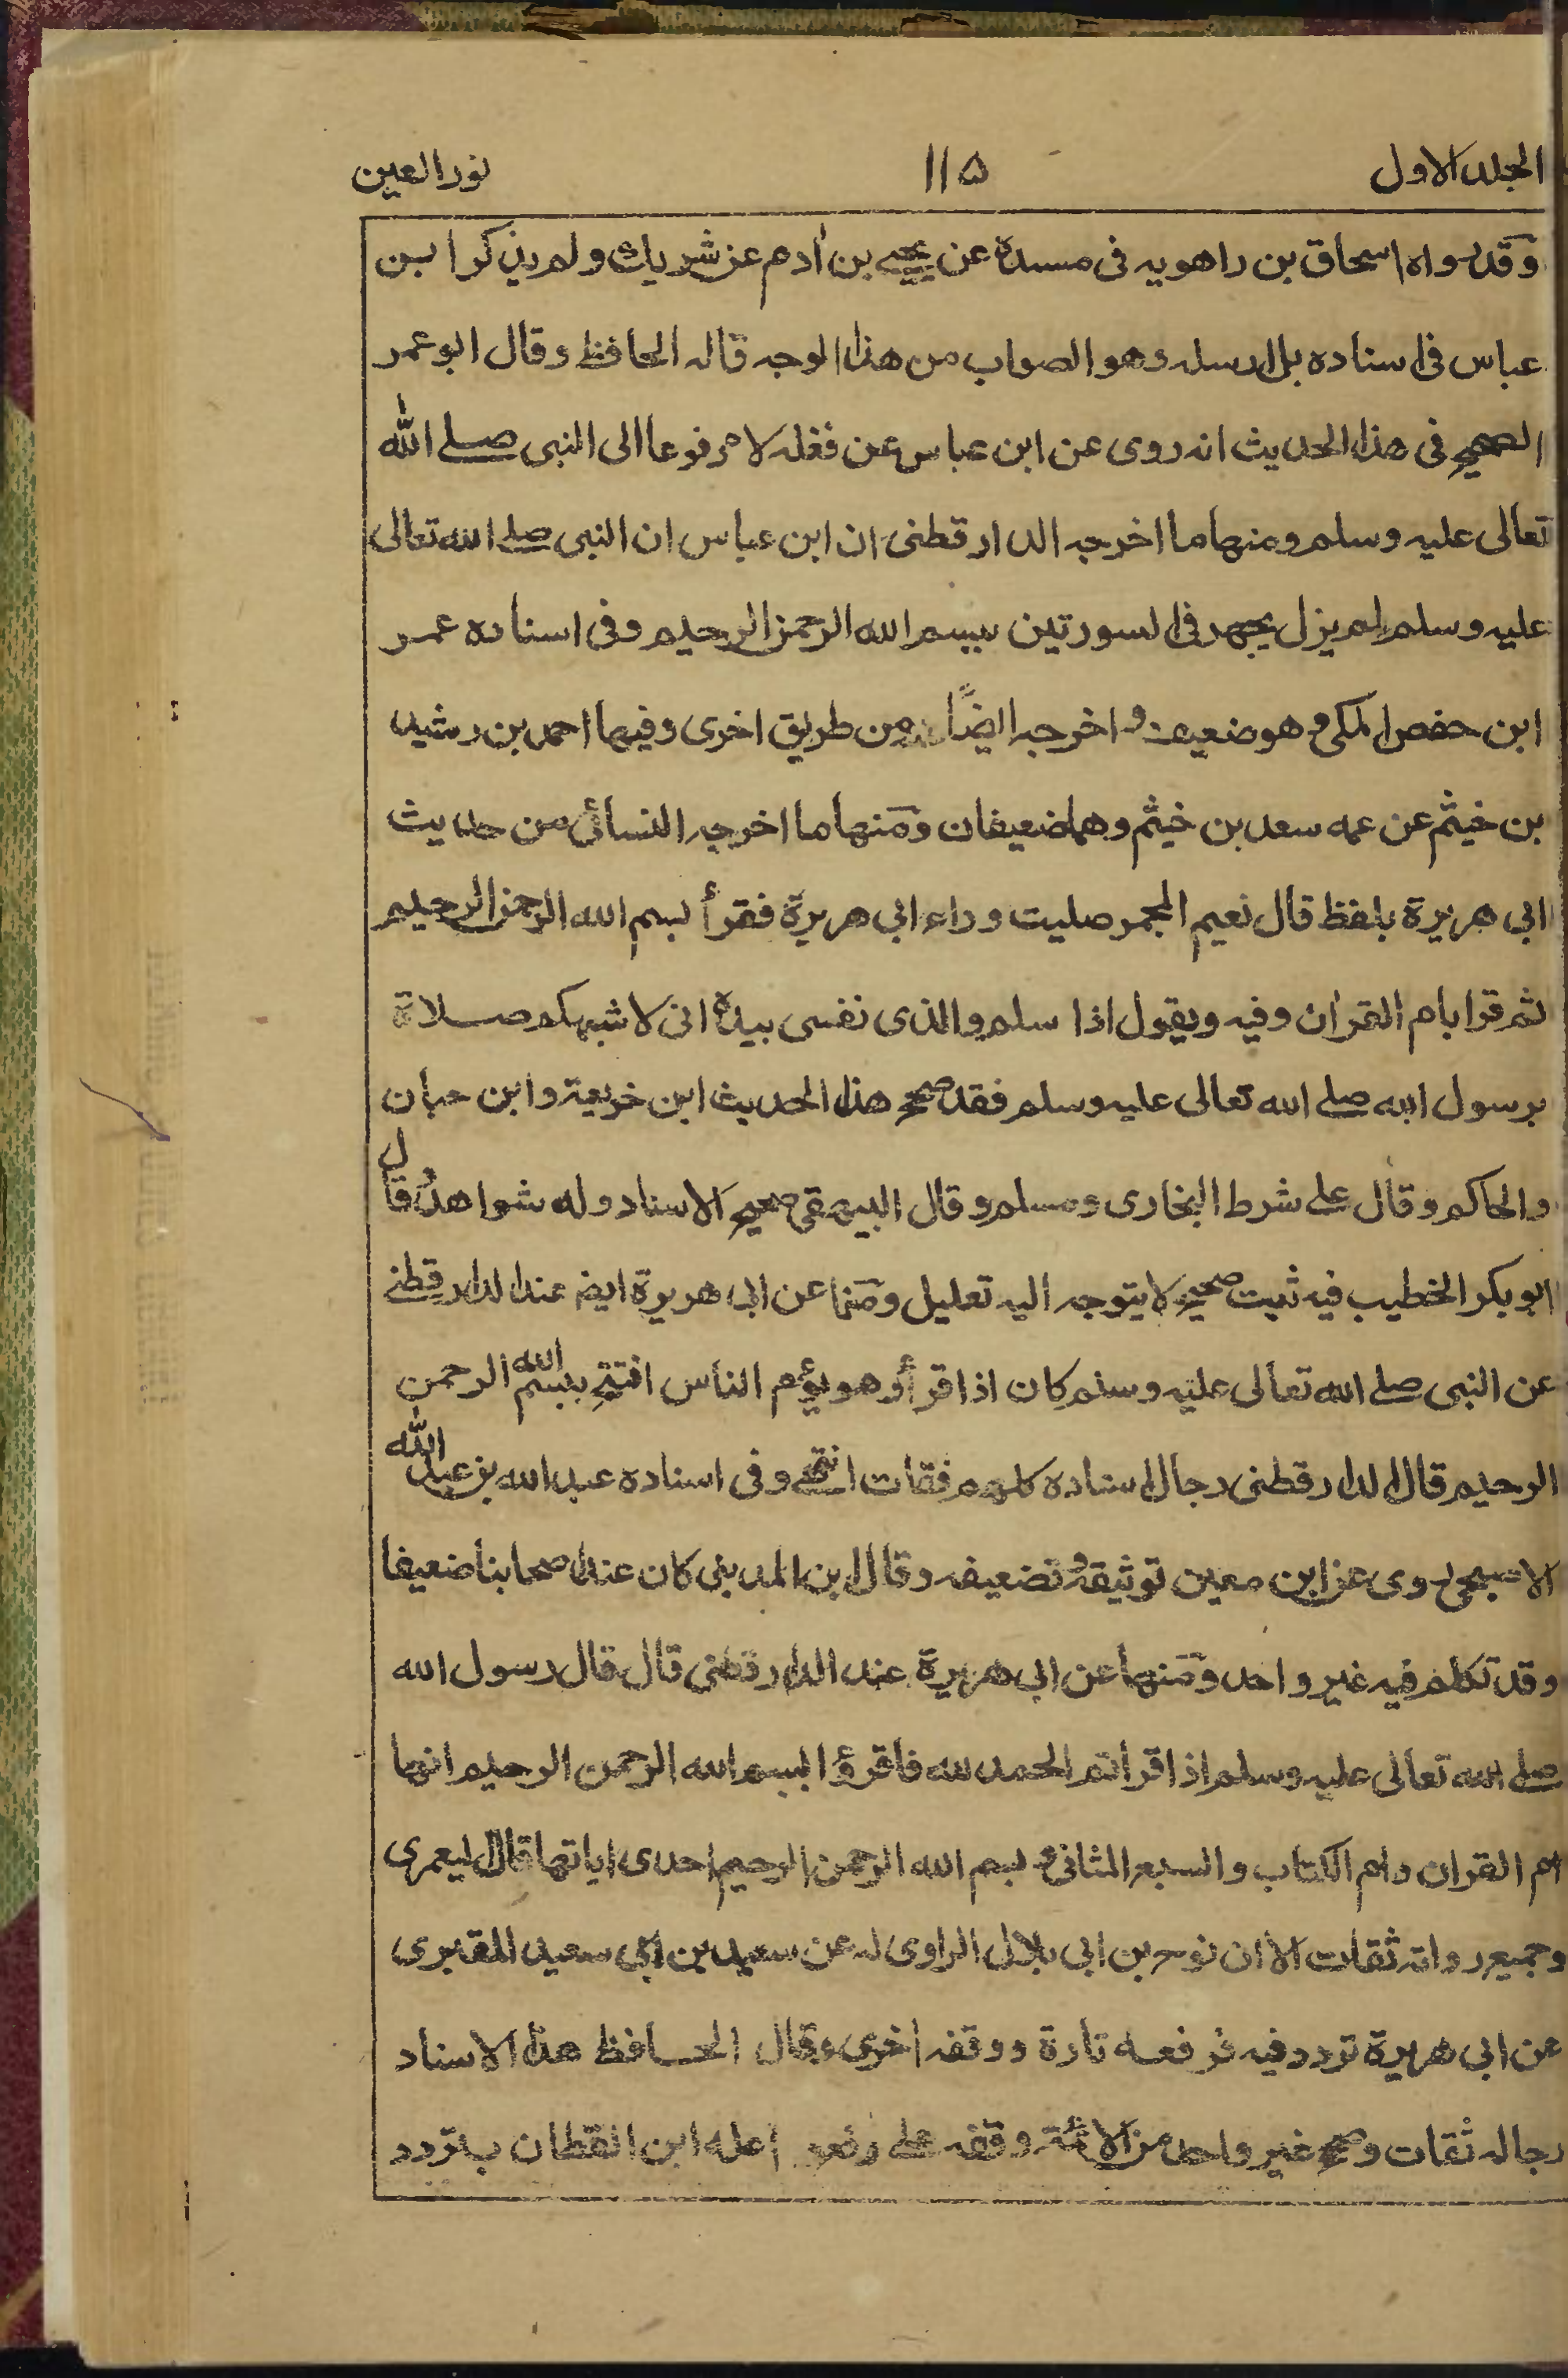 المجلد الاول ۱۱۵ نور العين
وقد رواه اسحاق بن راهويه فى مسنده عن يحيى بن اٰدم عن شريك ولم يذكر ابن
عباس فى اسناده بل ارسله وهو الصواب من هذا الوجه قاله الحافظ وقال ابو عمر
الصحيح فى هذا الحديث انه روى عن ابن عباس عن فغله لا مرفوعا الى النبى صلے الله
تعالى عليه وسلم ومنها ما اخرجه الدارقطنى ان ابن عباس ان النبى صلے الله تعالى
عليه وسلم لم يزل يجهر فى السورتين ببسم الله الرحمن الرحيم وفى اسناده عمر
ابن حفص المكى وهو ضعيف و اخرجه ايضًا من طريق اخرى وفيها احمد بن رشيد
بن خيثم عن عمه سعد بن خيثم وهما ضعيفان ومنها ما اخرجه النسائى من حديث
ابى هريرة بلفظ قال نعيم المجمر صليت وراء ابى هريرة فقرأ بسم الله الرحمن الرحيم
ثم قرا بام القراٰن وفيه ويقول اذا سلم والذى نفسى بيده انى لاشبهكم صلاة
برسول الله صلے الله تعالى عليه وسلم فقد صحح هذا الحديث ابن خزيمة وابن حبان
والحاكم وقال على شرط البخارى ومسلم وقال البيهقى صحيح الاسناد وله شواهدُ قال
ابو بكر الخطيب فيه ثبت صحيح لا يتوجه اليه تعليل ومنها عن ابى هريرة ايض عند الدارقطنے
عن النبى صلے الله تعالى عليه وسلم كان اذا قرأ وهو يؤم الناس افتتح ببسم الله الرحمن
الرحيم قال الدارقطنى رجال اسناده كلهم فقات انتهى وفى اسناده عبد الله بن عبد الله
الاصبحى روى عن ابن معين توثيقه وتضعيفه وقال ابن المدينى كان عند اصحابنا ضعيفا
وقد تكلم فيه غير واحد ومنها عن ابى هريرة عند الدارقطنى قال قال رسول الله
صلے الله تعالى عليه وسلم اذا قرأتم الحمد لله فاقرؤا ببسم الله الرحمن الرحيم انها
ام القران وام الكتاب والسبع المثانى و بسم الله الرحمن الرحيم احدى اياتها قال اليعمرى
وجميع رواته ثقات الا ان نوح بن ابى بلال الراوى له عن سعيد بن ابى سعيد المقبرى
عن ابى هريرة تردد فيه فرفعه تارة ووقفه اخرى وقال الحافظ هذا الاسناد
رجاله ثقات وصحح غير واحد من الائمة وقفه على رفعه اعله ابن القطان بتردد